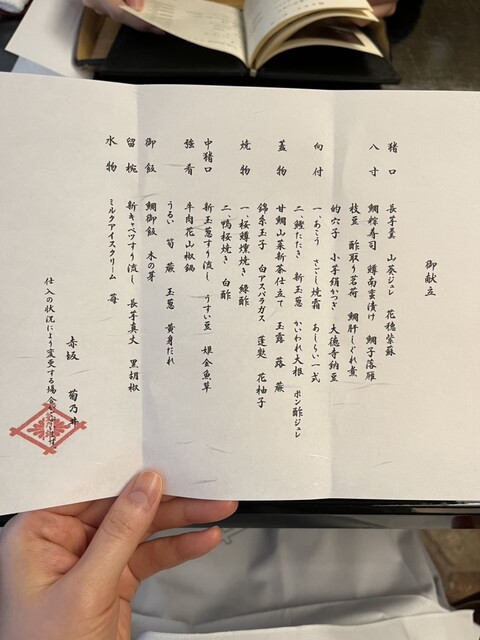 御献立
猪口 長芋羹 山葵ジュレ 花穂紫蘇
八寸 鯛粽寿司 鱒南蛮漬け 鯛子落雁
枝豆 酢取り茗荷 鯛肝しぐれ煮
的穴子 小芋絹かつぎ 大徳寺納豆
向付 一、あこう さごし焼霜 あしらい一式
二、鰹たたき 新玉葱 かいわれ大根 ポン酢ジュレ
蓋物 甘鯛山菜新茶仕立て 玉露 蕗 蕨
錦糸玉子 白アスパラガス 蓬麩 花柚子
焼物 一、桜鱒燻焼き 緑酢
二、鴨桜焼き 白酢
中猪口 新玉葱すり流し うすい豆 姫金魚草
強肴 牛肉花山椒鍋
うるい 筍 蕨 玉葱 黄身だれ
御飯 鯛御飯 木の芽
留椀 新キャベツすり流し 長芋真丈 黒胡椒
水物 ミルクアイスクリーム 苺
赤坂 菊乃井
仕入の状況により変更する場合が